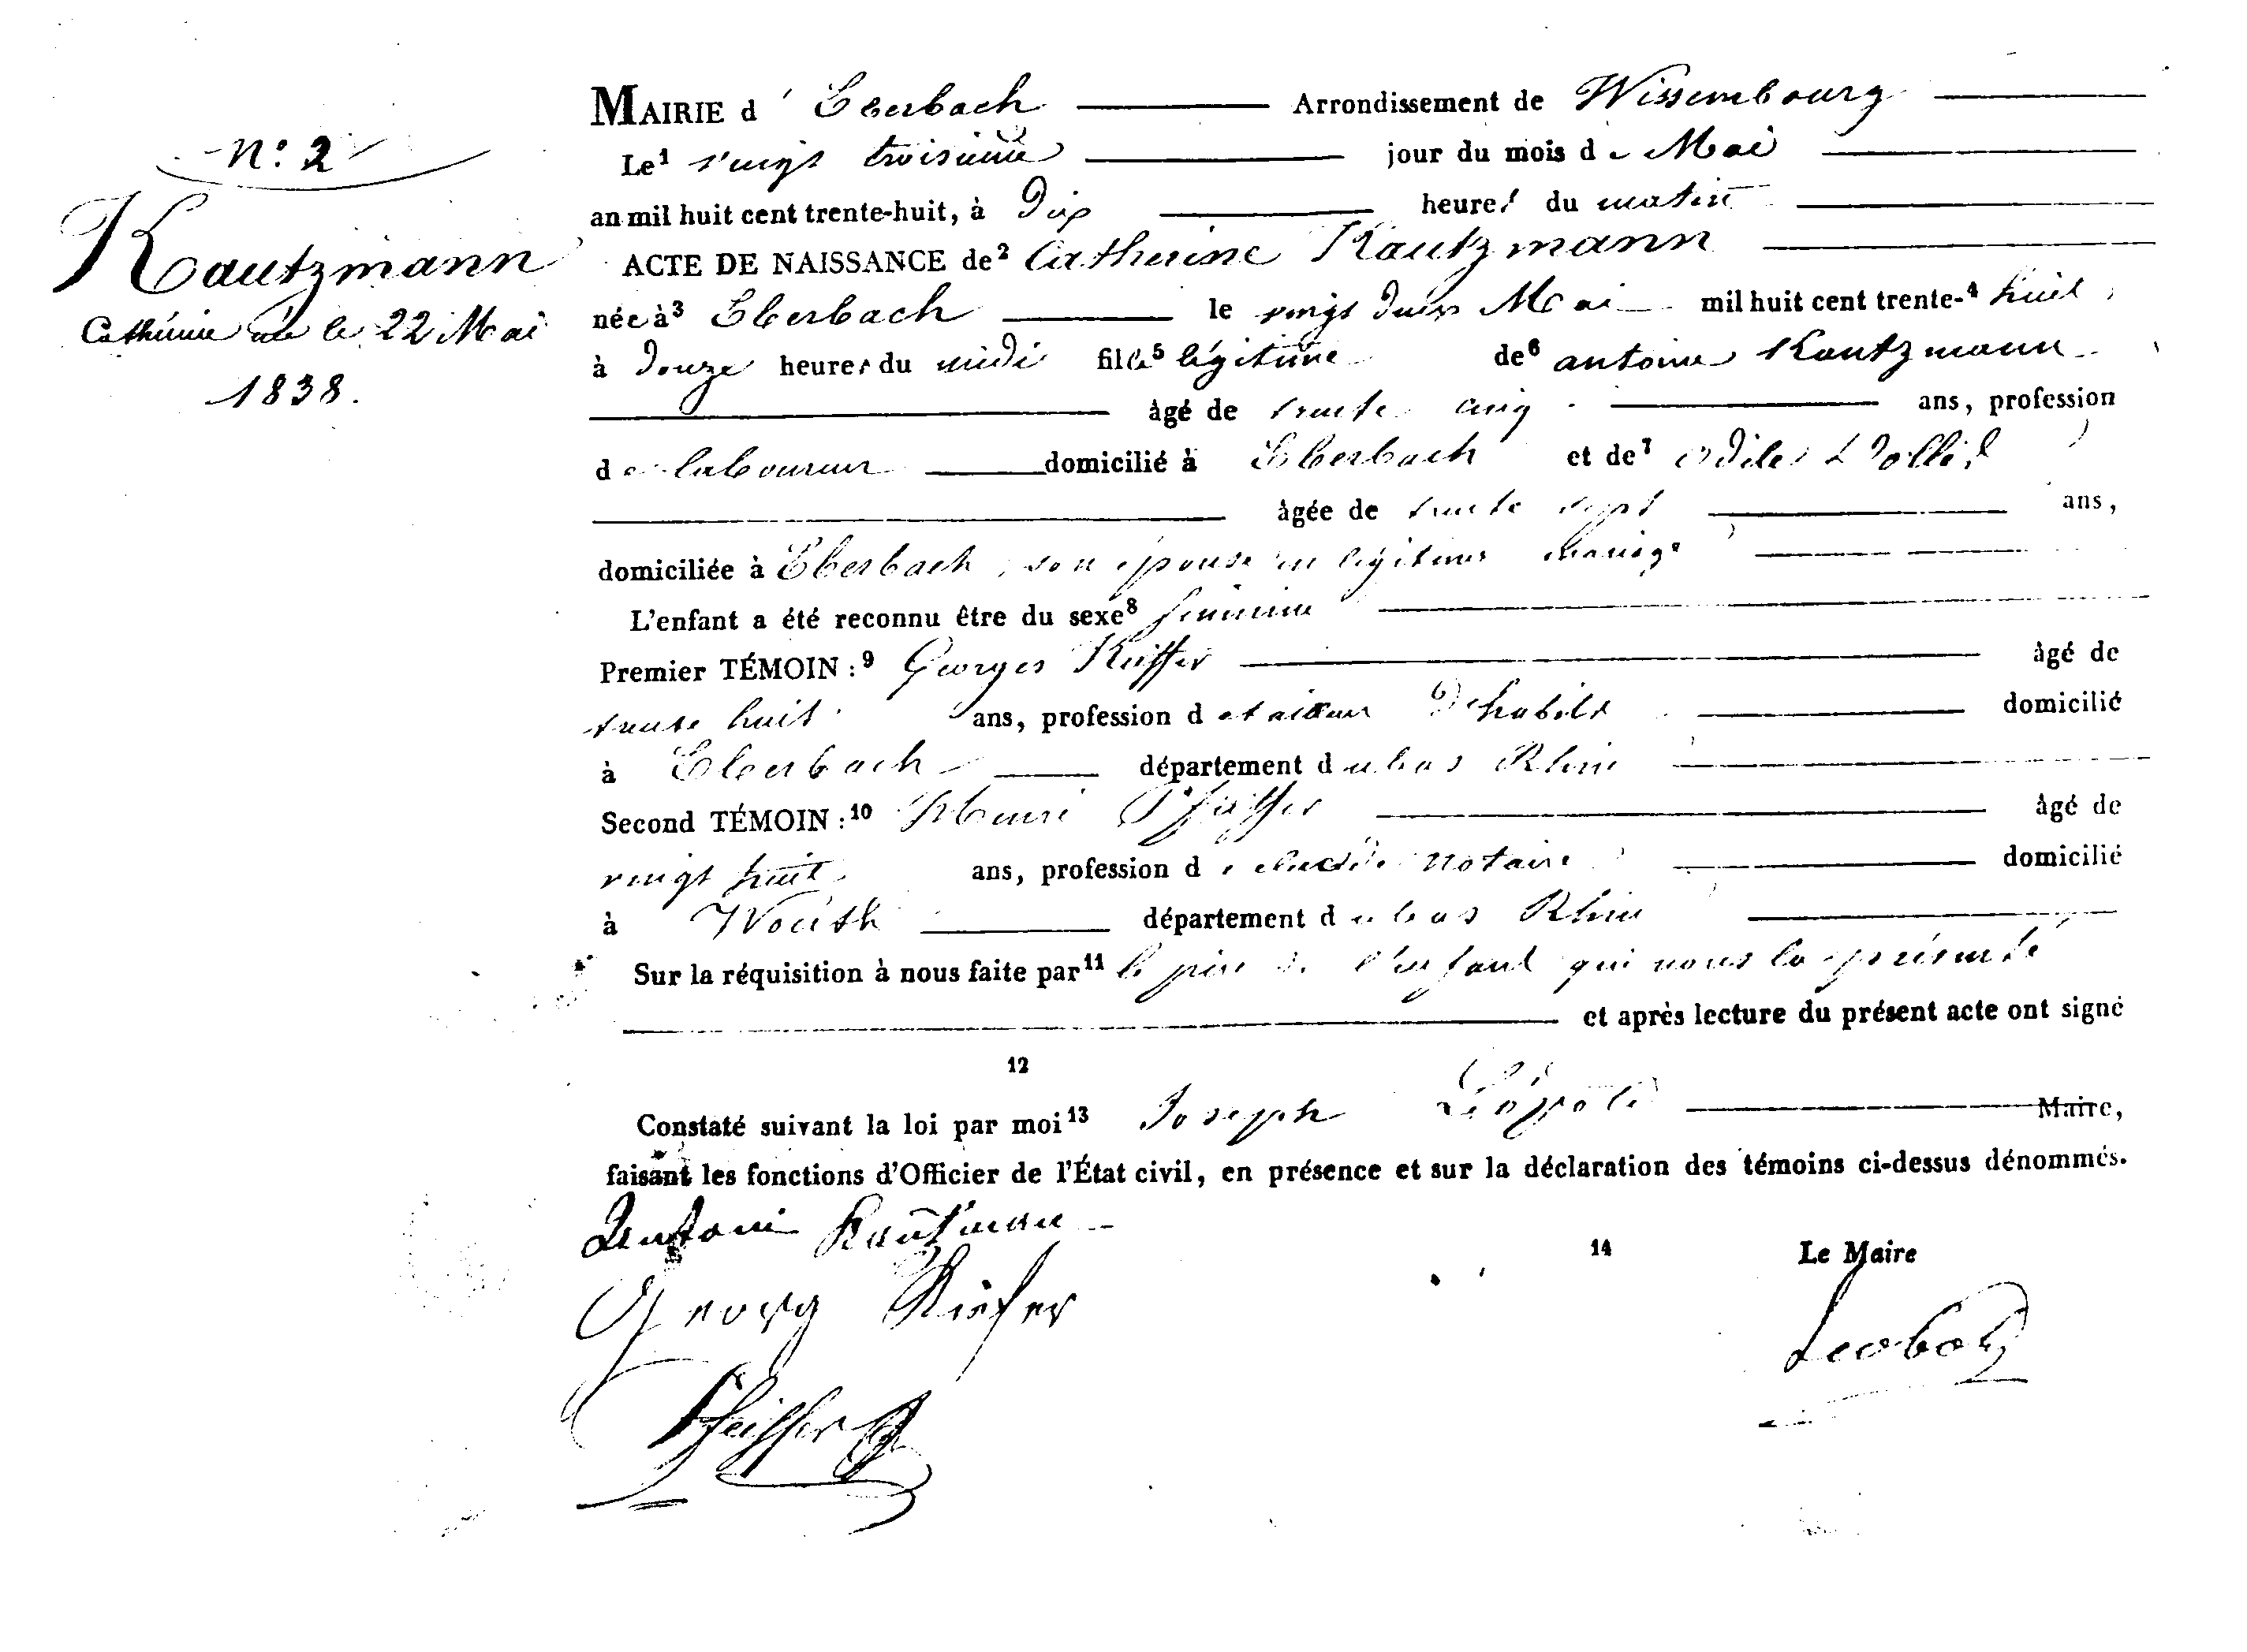 N.º 2
Kautzmann
Cathérine née le 22 Mai
1838.
MAIRIE d'Eberbach Arrondissement de Wissembourg
Le¹ vingt troisième jour du mois de Mai
an mil huit cent trente-huit, à Dix heures du matin
ACTE DE NAISSANCE de² Catherine Kautzmann
née à³ Eberbach le vingt deux Mai mil huit cent trente-⁴ huit
à Douze heures du midi fille⁵ légitime de⁶ antoine Kautzmann
âgé de trente cinq ans, profession
de laboureur domicilié à Eberbach et de⁷ odile
âgée de trente sept ans,
domiciliée à Eberbach, son épouse en légitime mariage
L'enfant a été reconnu être du sexe⁸ féminin
Premier TÉMOIN :⁹ Georges Kieffer âgé de
trente huit ans, profession de tailleur d'habits domicilié
à Eberbach département du bas Rhin
Second TÉMOIN :¹⁰ Henri Pfeiffer âgé de
vingt huit ans, profession de clerc de notaire domicilié
à Woerth département du bas Rhin
Sur la réquisition à nous faite par¹¹ le père de l'enfant qui nous la présenté
et après lecture du présent acte ont signé
12
Constaté suivant la loi par moi¹³ Joseph Léopold Maire,
faisant les fonctions d'Officier de l'État civil, en présence et sur la déclaration des témoins ci-dessus dénommés.
Antoni Kautzman
14 Le Maire
Georg Kiefer
Leobold
Pfeiffer